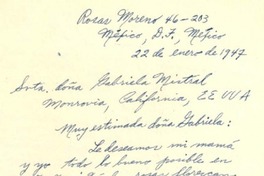 Rosas Moreno 46-203
México, D.F., México
22 de enero de 1947
Srta. doña Gabriela Mistral
Monrovia, California, EE UU A
Muy estimada doña Gabriela:
Le deseamos mi mamá
y yo todo lo bueno posible en